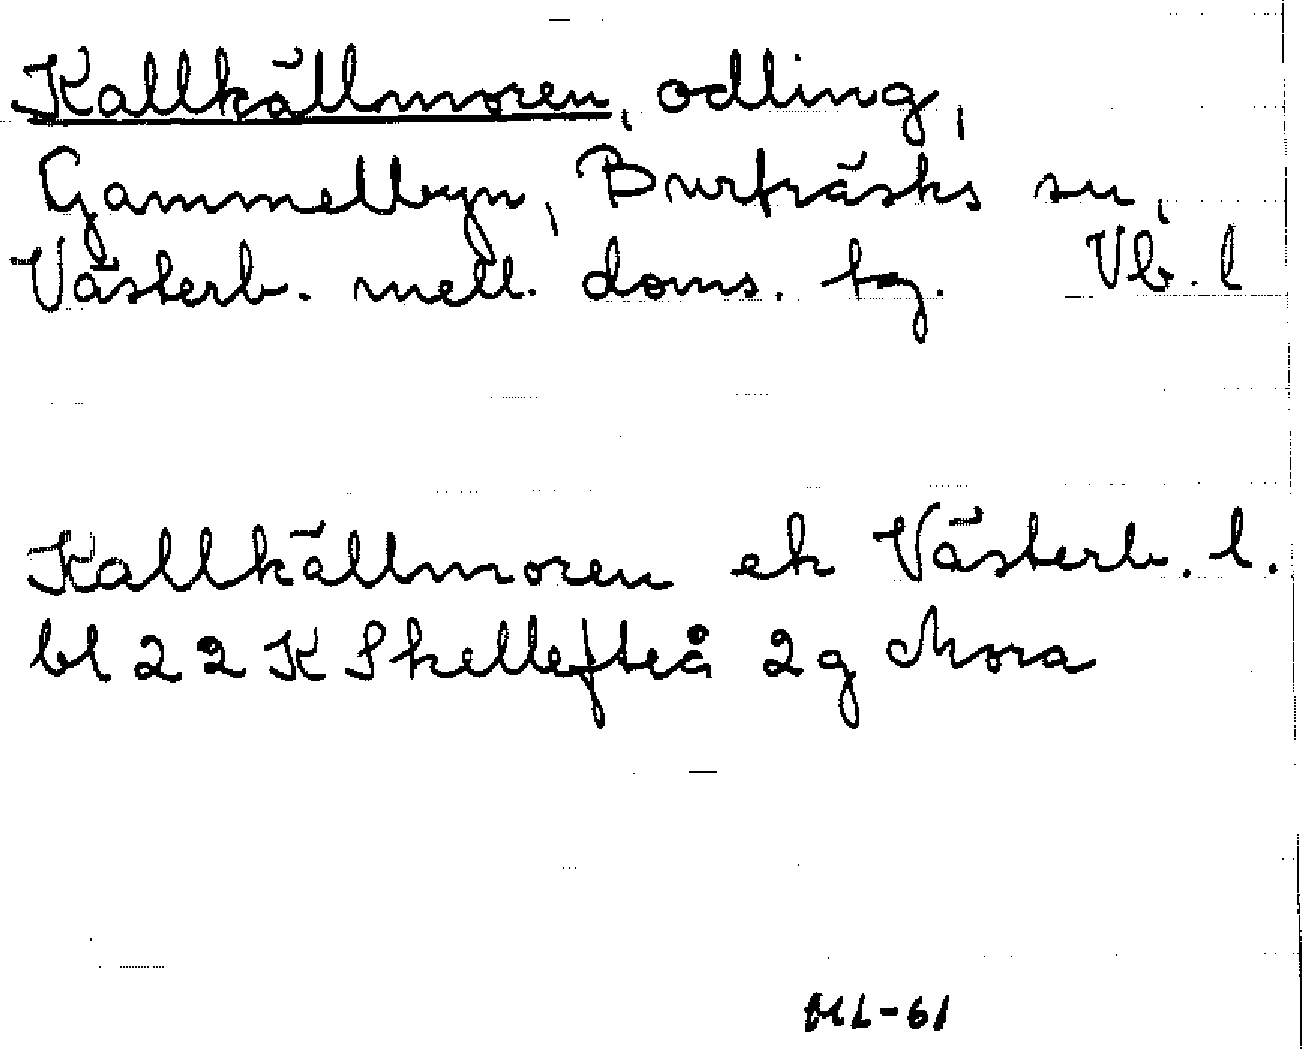 Kallkällmoren, odling,
Gammelbyn, Burträsks sn,
Västerb. mell. doms. tg. Vb. l
Kallkällmoren ek Västerb. l.
bl 22 K Skellefteå 2g Mora
ML-61